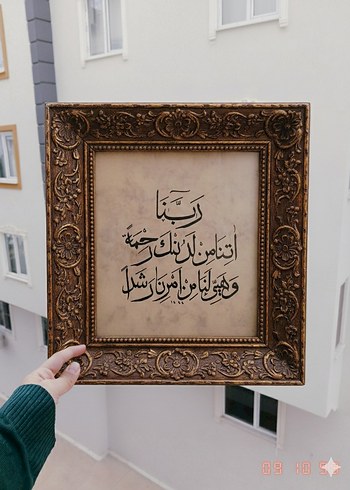 رَبَّنَا
اٰتِنَا مِنْ لَدُنْكَ رَحْمَةً
وَهَيِّئْ لَنَا مِنْ اَمْرِنَا رَشَدًا